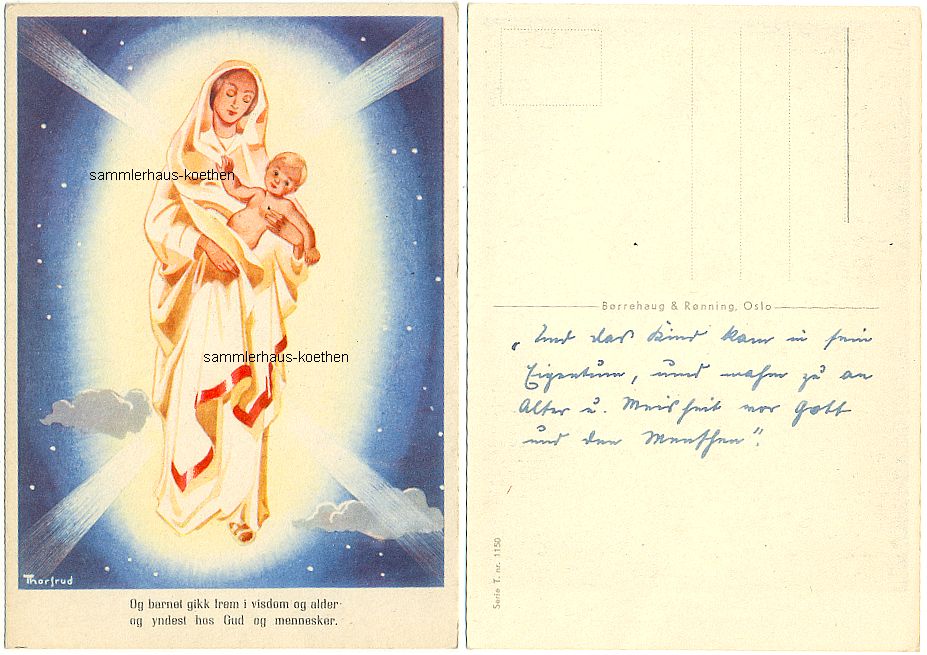 sammlerhaus-koethen
sammlerhaus-koethen
Thorfrud
Og barnet gikk frem i visdom og alder
og yndest hos Gud og mennesker.
Børrehaug & Rønning, Oslo
„Und das Kind kam in sein
Eigentum, und nahm zu an
Alter u. Weisheit vor Gott
und den Menschen".
Serie T. nr. 1150